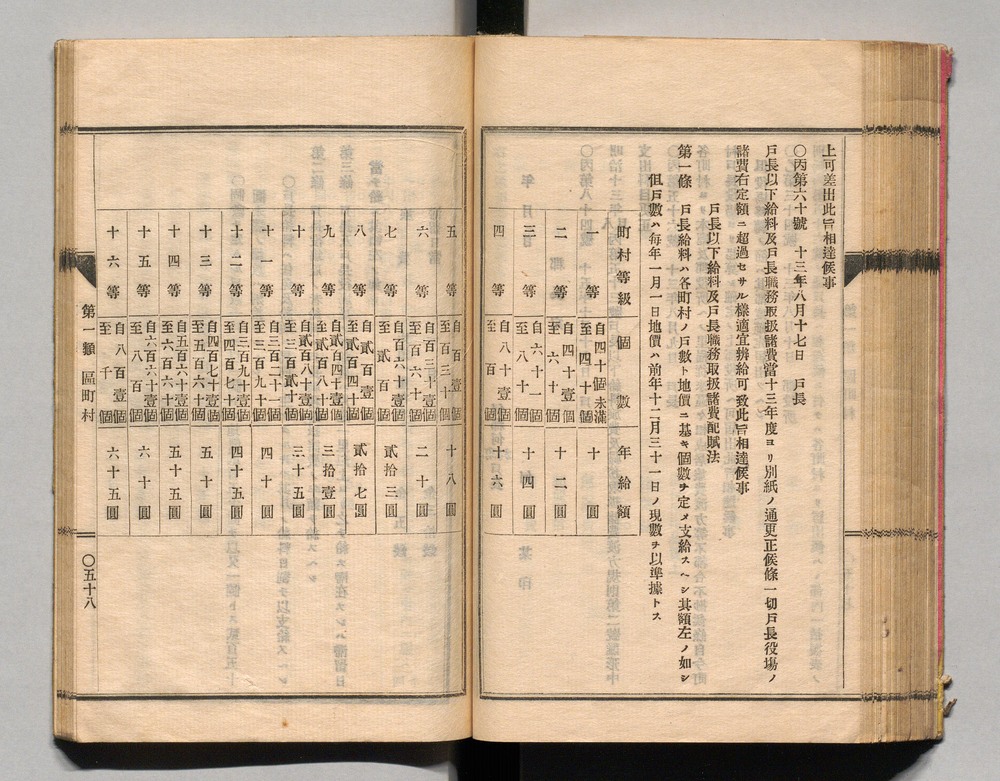 上可差出此旨相達候事
〇丙第六十號　十三年八月十七日　戸長
戸長以下給料及戸長職務取扱諸費當十三年度ヨリ別紙ノ通更正候條一切戸長役塲ノ
諸費右定額ニ超過セサル樣適宜辨給可致此旨相達候事
戸長以下給料及戸長職務取扱諸費配賦法
第一條　戸長給料ハ各町村ノ戸數ト地價ニ基キ個數ヲ定メ支給スヘシ其額左ノ如シ
但戸數ハ毎年一月一日地價ハ前年十二月三十一日ノ現數ヲ以準據トス
町村等級　個數　年給額
一等　自四十個未滿　十圓
二等　自四十壹個　至六十個　十二圓
三等　自六十一個　至八十個　十四圓
四等　自八十壹個　至百個　十六圓
五等　自百壹個　至百三十個　十八圓
六等　自百三十壹個　至百六十個　二十圓
七等　自百六十壹個　至貳百個　貳拾三圓
八等　自貳百壹個　至貳百四十個　貳拾七圓
九等　自貳百四十壹個　至貳百八十個　三拾壹圓
十等　自貳百八十壹個　至三百貳十個　三十五圓
十一等　自三百二十一個　至三百九十個　四十圓
十二等　自三百九十壹個　至四百七十個　四十五圓
十三等　自四百七十壹個　至五百六十個　五十圓
十四等　自五百六十壹個　至六百六十個　五十五圓
十五等　自六百六十壹個　至八百個　六十圓
十六等　自八百壹個　至千個　六十五圓
第一類　區町村
〇五十八